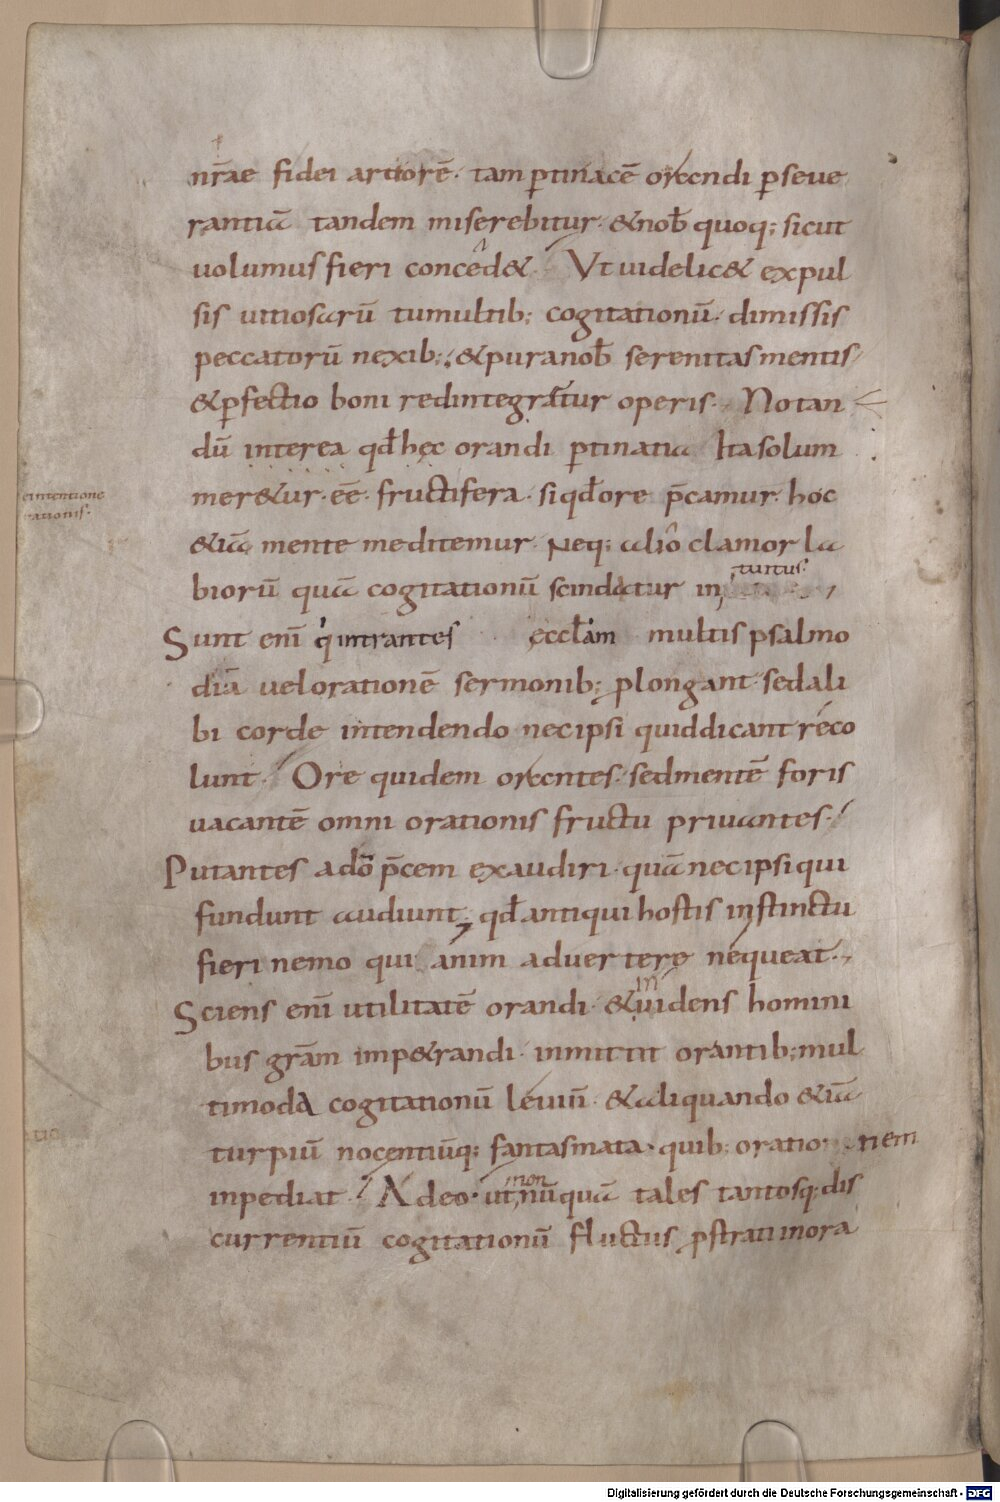 nr̄ae fidei ardorē· tam ꝑtinacē orandi ꝑseue
rantiā tandem miserebitur· &nob̄ quoq; sicut
uolumus fieri conced&· Vt uidelic& expul
sis uitiosarū tumultib; cogitationū· dimissis
peccatorū nexib; &pura nob̄ serenitas mentis
&ꝑfectio boni redintegratur operis· Notan
dū interea qd̄ hęc orandi ꝑtinatia Ita solum
mer&ur· eē· fructifera· si qd̄ ore p̄camur· hoc
eintentione
rationis·
&iā mente meditemur· Neq; alio clamor la
biorū quā cogitationū scindatur in tuitus·
Sunt enī qui intrantes eccl̄am multis psalmo
diā uel orationē sermonib; ꝓlongant· sed ali
bi corde intendendo nec ipsi quid dicant reco
lunt· Ore quidem orantes· sed mentē foris
uacantē omni orationis fructu priuantes·
Putantes a dō p̄cem exaudiri· quā nec ipsi qui
fundunt audiunt; qd̄ antiqui hostis instinctu
fieri nemo qui anim aduertere nequeat·
Sciens enī utilitatē orandi· &inuidens homini
bus grām imp&randi· inmittit orantib; mul
timoda cogitationū leuiū· &aliquando &iā
tio
turpiū nocentiūq; fantasmata· quib; orationem
inpediat· Adeo· ut non nūquā tales tantosq; dis
currentiū cogitationū fluctus ꝓstrati in ora
Digitalisierung gefördert durch die Deutsche Forschungsgemeinschaft - DFG